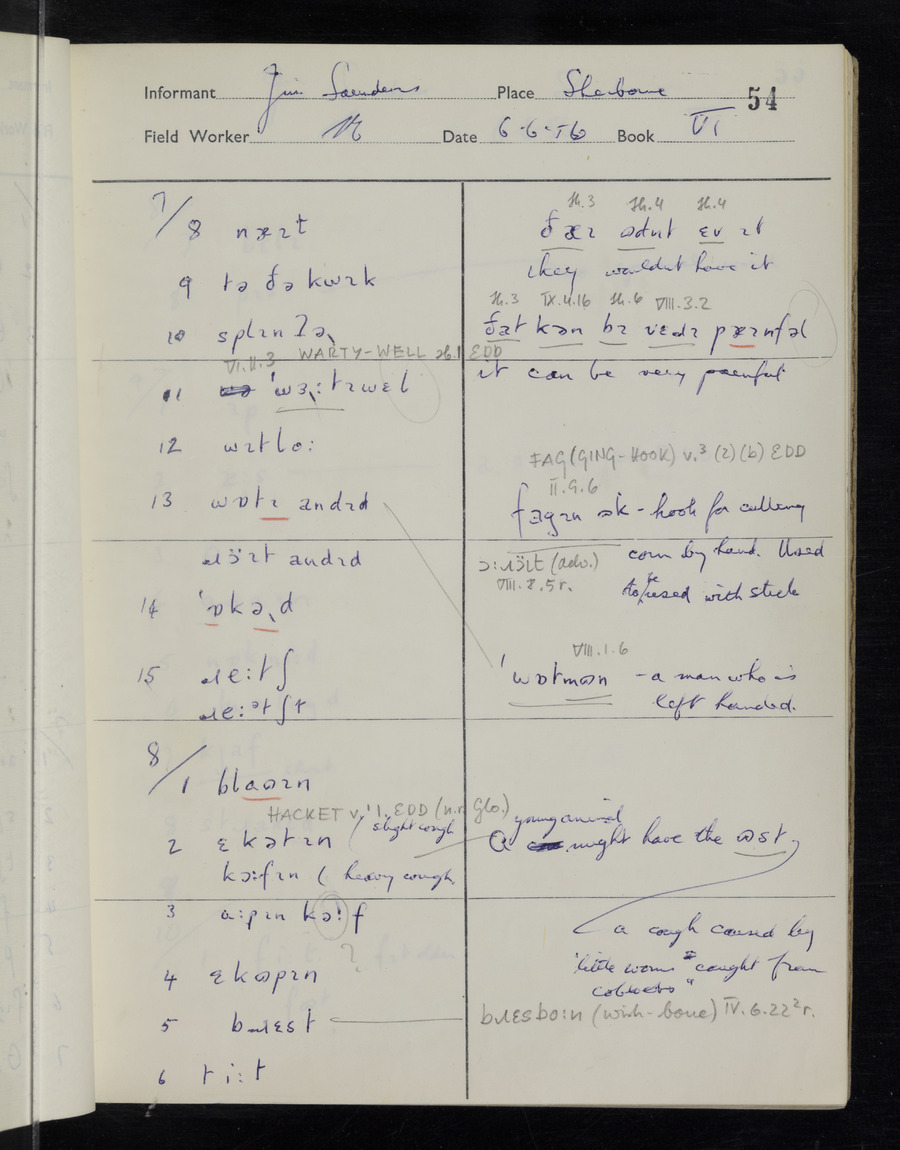 Informant Jim Saunders Place Sherborne 54
Field Worker Date 6·6·56 Book VI
7/8 næɪt
9 tə ðə kwɪk
10 splɪnʔə
VI.11.3 WARTY-WELL sb.1 EDD
11 'wɜ:tɪwɛl
12 wɪtlo:
13 wɒtɪ andɪd
andɪd
14 'ɒkəd
15 ɹe:tʃ
ɹe:ətʃt
8/1 blaʊɪn
HACKET v.¹1. EDD (n.r. Glo.)
2 ɛkətɪn (slight cough
kɔ:fɪn (heavy cough
3 a:pɪn kɔ:f
4 ɛkʊpɪn ?
5 bɹɛst
6 ti:t
sb.3 sb.4 sb.4
ðæɪ ʊdnt ɛv ɪt
they wouldnt have it
sb.3 IX.4.16 sb.6 VIII.3.2
ðat kən bɪ vɛɹɪ pæɪnfəl
it can be very painful
FAG(GING-HOOK) v.³ (2)(b) EDD
II.9.6
fagɪn ʊk - hook for cutting
corn by hand. Used
to be used with stick
(adv.)
VIII.8.5r.
VIII.1.6
'wɒtmən - a man who is
left handed.
young animal
a might have the ʊst
a cough caused by
"little worms caught from
cobwebs"
bɹɛsbo:n (wish-bone) IV.6.22²r.